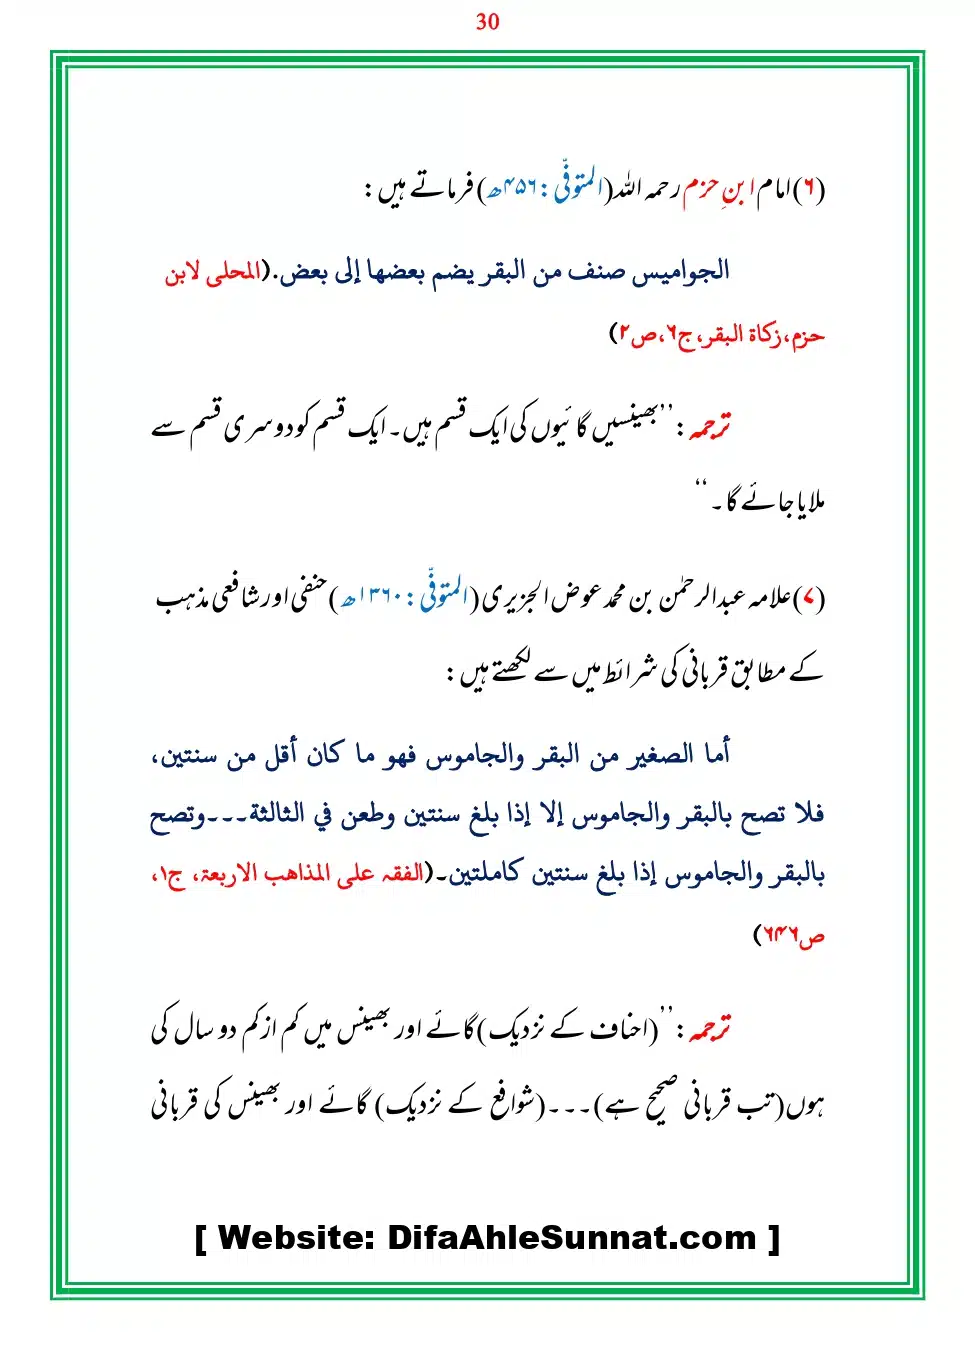 30
(۶) امام ابنِ حزم رحمہ اللہ (المتوفّٰی: ۴۵۶ھ) فرماتے ہیں:
الجواميس صنف من البقر يضم بعضها إلى بعض. (المحلی لابن
حزم، زكاة البقر، ج۶، ص۲)
ترجمہ: ’’بھینسیں گائیوں کی ایک قسم ہیں۔ ایک قسم کو دوسری قسم سے
ملایا جائے گا۔‘‘
(۷) علامہ عبدالرحمٰن بن محمد عوض الجزیری (المتوفّٰی: ۱۳۶۰ھ) حنفی اور شافعی مذہب
کے مطابق قربانی کی شرائط میں سے لکھتے ہیں:
أما الصغير من البقر والجاموس فهو ما كان أقل من سنتين،
فلا تصح بالبقر والجاموس إلا إذا بلغ سنتين وطعن في الثالثة۔۔۔وتصح
بالبقر والجاموس إذا بلغ سنتين كاملتين۔ (الفقہ علی المذاهب الاربعۃ، ج۱،
ص۶۴۶)
ترجمہ: ’’(احناف کے نزدیک) گائے اور بھینس میں کم از کم دو سال کی
ہوں (تب قربانی صحیح ہے)۔۔۔(شوافع کے نزدیک) گائے اور بھینس کی قربانی
[ Website: DifaAhleSunnat.com ]